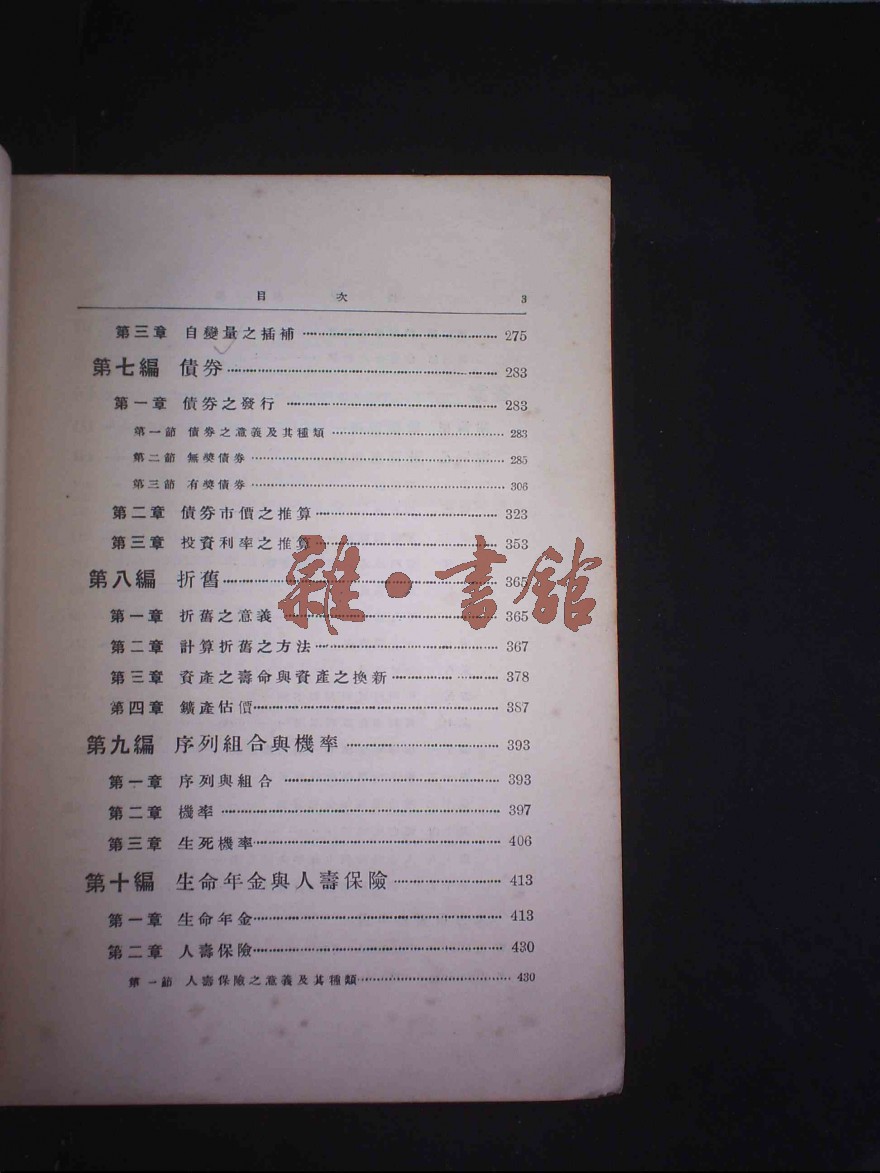 目次 3
第三章 自變量之插補 275
第七編 債券 283
第一章 債券之發行 283
第一節 債券之意義及其種類 283
第二節 無獎債券 285
第三節 有獎債券 306
第二章 債券市價之推算 323
第三章 投資利率之推算 353
第八編 折舊 365
雜·書館
第一章 折舊之意義 365
第二章 計算折舊之方法 367
第三章 資產之壽命與資產之換新 378
第四章 鑛產估價 387
第九編 序列組合與機率 393
第一章 序列與組合 393
第二章 機率 397
第三章 生死機率 406
第十編 生命年金與人壽保險 413
第一章 生命年金 413
第二章 人壽保險 430
第一節 人壽保險之意義及其種類 430